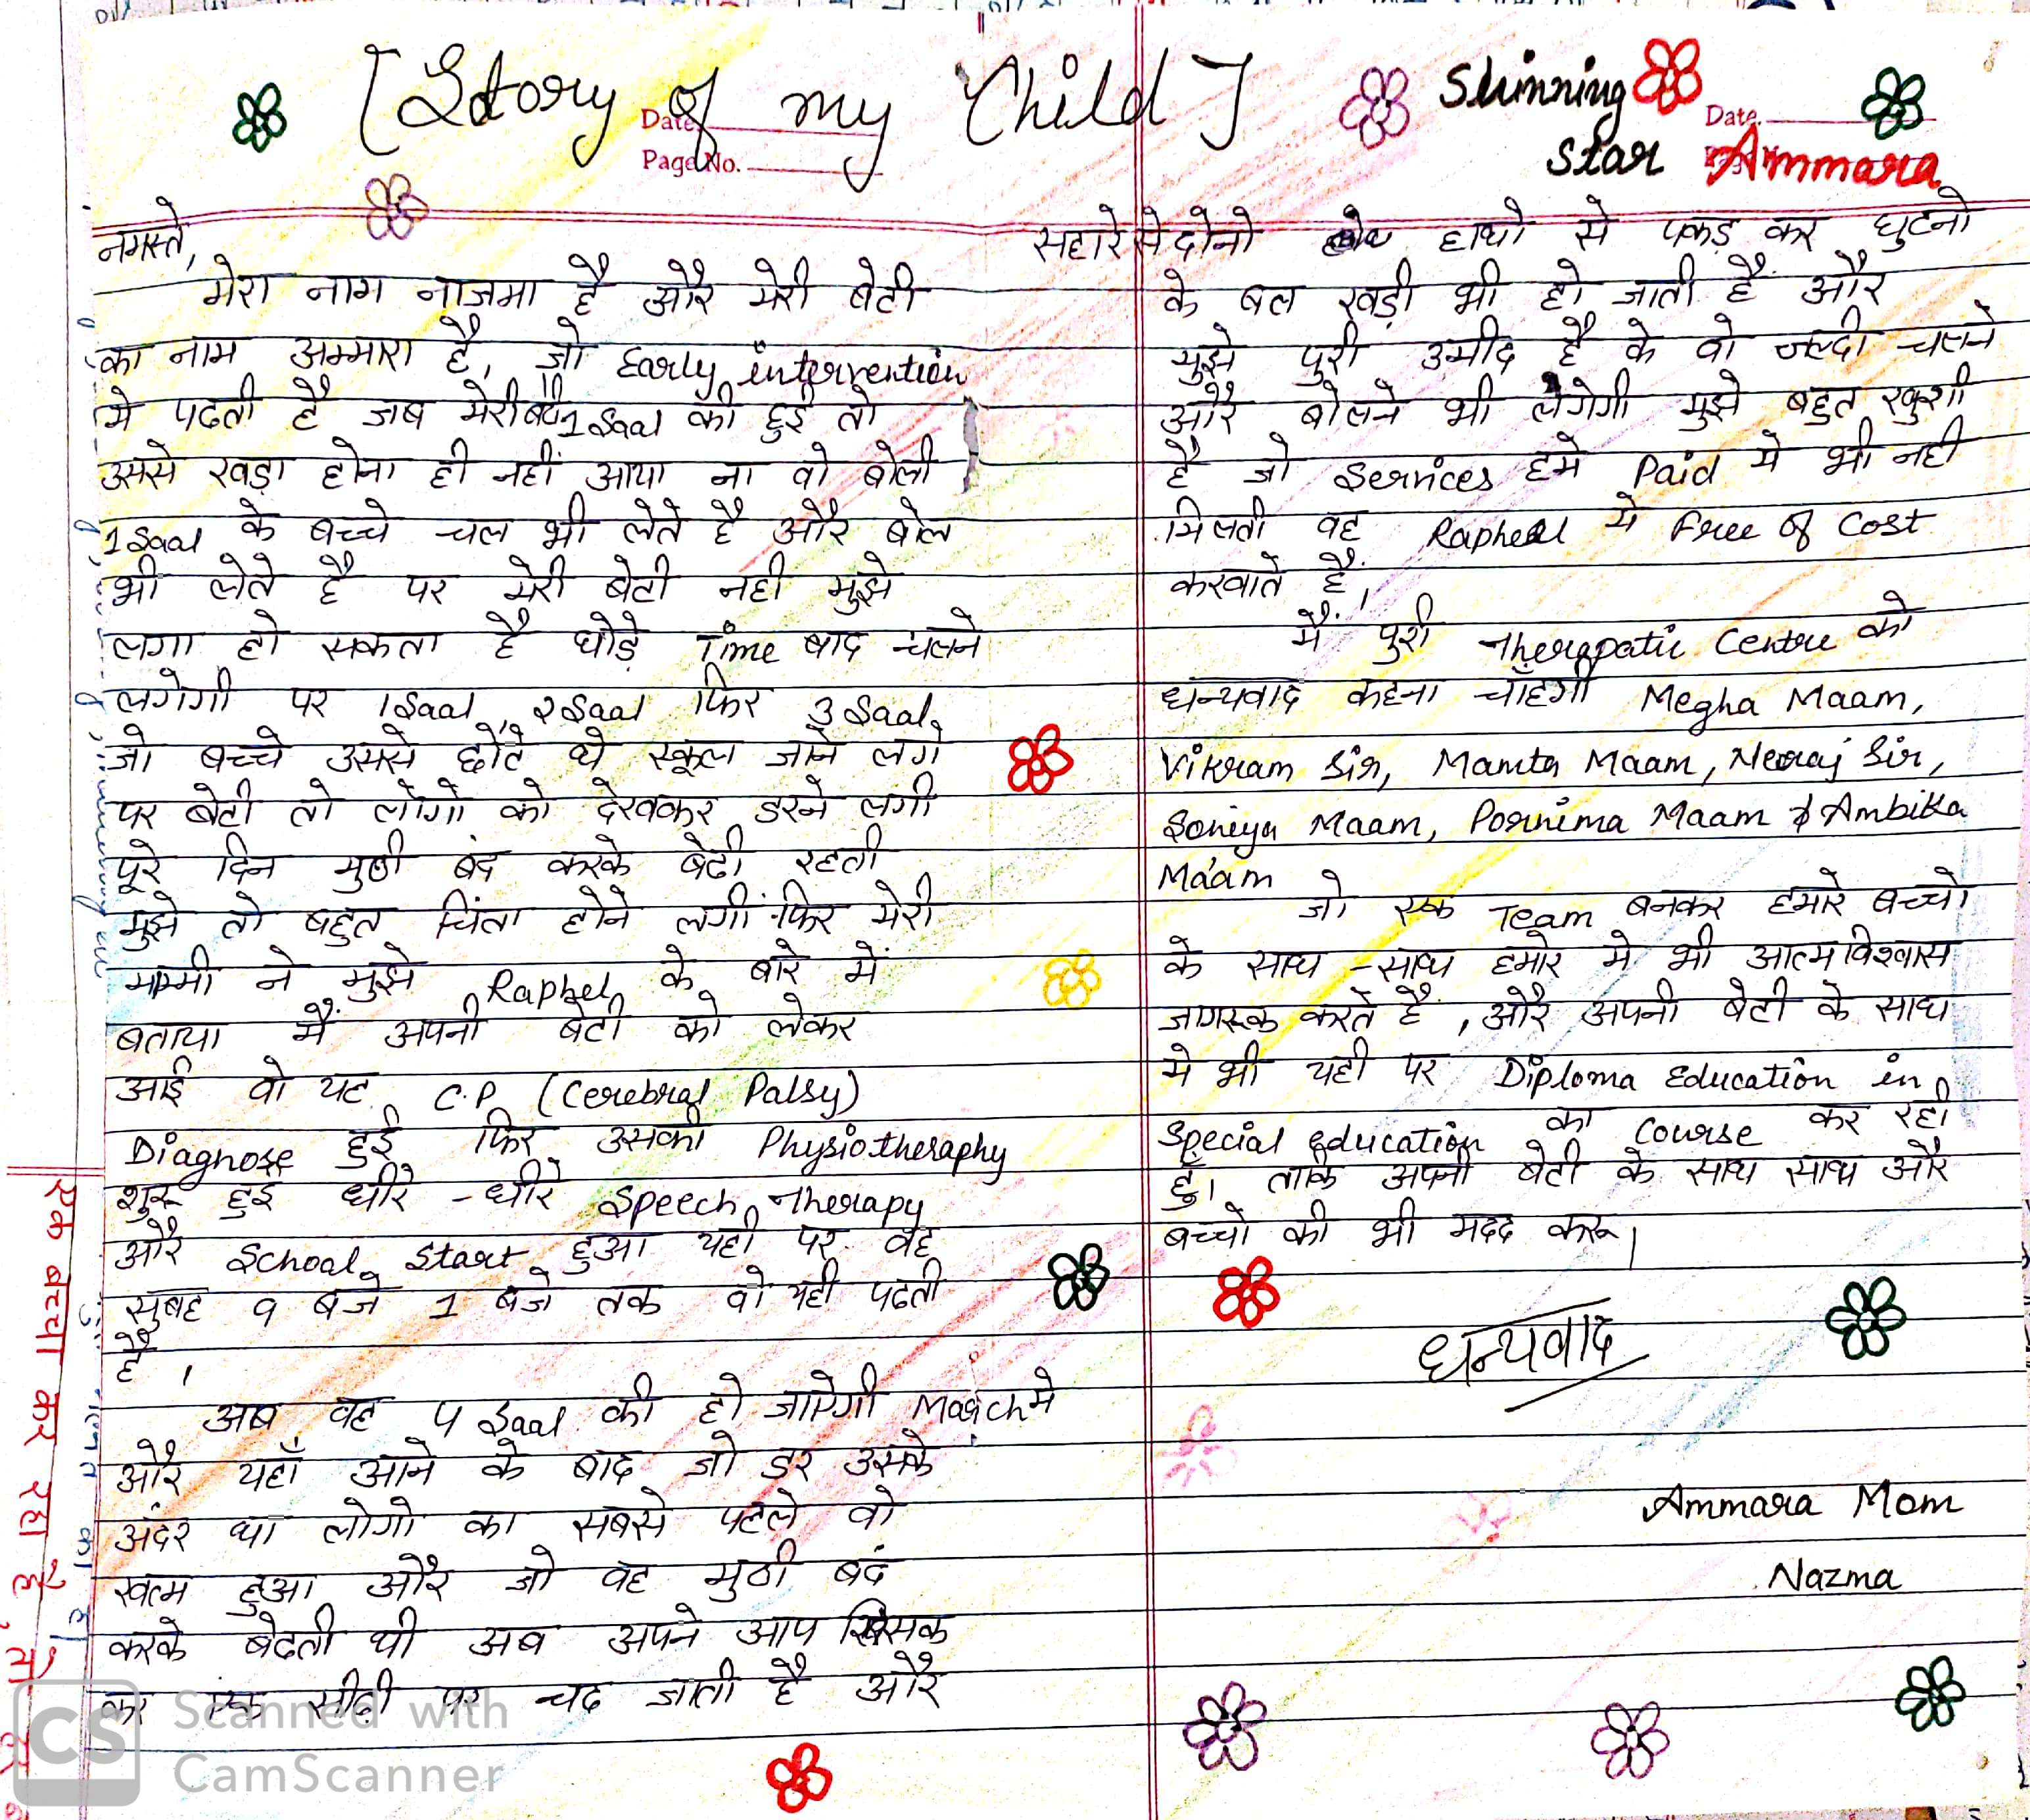 [Story of my Child]
Shinning
Star Ammara
Date.
Page No.
Date.
नमस्ते,
मेरा नाम नाजमा है और मेरी बेटी
का नाम अम्मारा है, जो Early intervention
मे पढती है जब मेरी 1 Saal की हुई तो
उससे खड़ा होना ही नहीं आया ना वो बोली
1 Saal के बच्चे चल भी लेते है और बोल
भी लेते है पर मेरी बेटी नही मुझे
लगा हो सकता है थोड़े Time बाद चलने
लगेगी पर 1 Saal, 2 Saal फिर 3 Saal,
जो बच्चे उससे छोटे थे स्कूल जाने लगे
पर बेटी तो लोगों को देखकर डरने लगी
पूरे दिन मुठ्ठी बंद करके बेठी रहती
मुझे तो बहुत चिंता होने लगी फिर मेरी
मम्मी ने मुझे Raphel के बारे में
बताया मैं अपनी बेटी को लेकर
आई वो यह C.P (Cerebral Palsy)
Diagnose हुई फिर उसकी Physiotheraphy
शुरू हुई धीरे - धीरे Speech Therapy
और School Start हुआ यही पर वह
सुबह 9 बजे 1 बजे तक वो यही पढती
है ।
अब वह 4 Saal की हो जाऐगी March मे
और यहाँ आने के बाद जो डर उसके
अंदर था लोगो का सबसे पहले वो
खत्म हुआ और जो वह मुठी बदं
करके बेठती थी अब अपने आप खिसक
कर एक सीढी पर चढ जाती है और
सहारे से दोनो हाथो से पकड़ कर घुटनो
के बल खड़ी भी हो जाती है और
मुझे पुरी उमीद है के वो जल्दी चलने
और बोलने भी लगेगी मुझे बहुत खुशी
है जो Services हमे Paid मे भी नही
मिलती वह Rapheal मे Free of Cost
करवाते हैं।
मैं पुरी Therapatic Centre को
धन्यवाद कहना चाँहगी Megha Maam,
Vikram Sir, Mamta Maam, Neeraj Sir,
Soniya Maam, Pornima Maam & Ambika
Ma'am
जो एक Team बनकर हमारे बच्चो
के साथ - साथ हमारे मे भी आत्मविश्वास
जागरूक करते है, और अपनी बेटी के साथ
मे भी यही पर Diploma Education in
Special Education का Course कर रही
हूँ। ताकि अपनी बेटी के साथ साथ और
बच्चो की भी मदद करू।
धन्यवाद
Ammara Mom
Nazma
एक बच्चा कर रहा है,
CS Scanned with
CamScanner